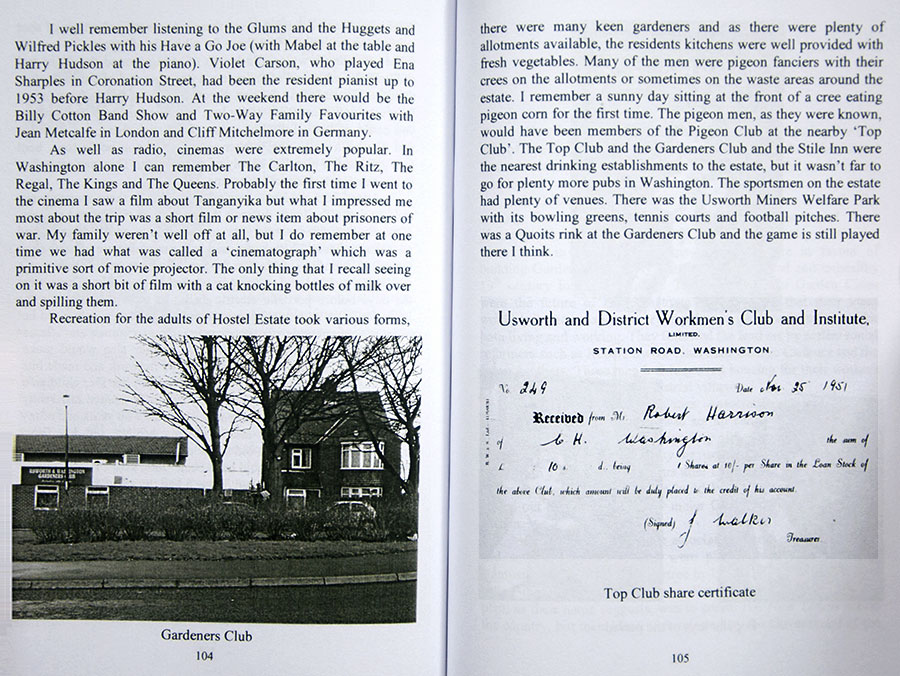 I well remember listening to the Glums and the Huggets and
Wilfred Pickles with his Have a Go Joe (with Mabel at the table and
Harry Hudson at the piano). Violet Carson, who played Ena
Sharples in Coronation Street, had been the resident pianist up to
1953 before Harry Hudson. At the weekend there would be the
Billy Cotton Band Show and Two-Way Family Favourites with
Jean Metcalfe in London and Cliff Mitchelmore in Germany.
As well as radio, cinemas were extremely popular. In
Washington alone I can remember The Carlton, The Ritz, The
Regal, The Kings and The Queens. Probably the first time I went to
the cinema I saw a film about Tanganyika but what I impressed me
most about the trip was a short film or news item about prisoners of
war. My family weren't well off at all, but I do remember at one
time we had what was called a 'cinematograph' which was a
primitive sort of movie projector. The only thing that I recall seeing
on it was a short bit of film with a cat knocking bottles of milk over
and spilling them.
Recreation for the adults of Hostel Estate took various forms,
USWORTH & WASHINGTON
GARDENERS CLUB
Gardeners Club
104
there were many keen gardeners and as there were plenty of
allotments available, the residents kitchens were well provided with
fresh vegetables. Many of the men were pigeon fanciers with their
crees on the allotments or sometimes on the waste areas around the
estate. I remember a sunny day sitting at the front of a cree eating
pigeon corn for the first time. The pigeon men, as they were known,
would have been members of the Pigeon Club at the nearby 'Top
Club'. The Top Club and the Gardeners Club and the Stile Inn were
the nearest drinking establishments to the estate, but it wasn't far to
go for plenty more pubs in Washington. The sportsmen on the estate
had plenty of venues. There was the Usworth Miners Welfare Park
with its bowling greens, tennis courts and football pitches. There
was a Quoits rink at the Gardeners Club and the game is still played
there I think.
Usworth and District Workmen's Club and Institute,
LIMITED.
STATION ROAD, WASHINGTON.
No 249 Date Nov 25 1951
Received from Mr. Robert Harrison
of C H. Washington the sum of
£ 10 s. d. being 1 Shares at 10/- per Share in the Loan Stock of
the above Club, which amount will be duly placed to the credit of his account.
(Signed) J Walker
Treasurer
Top Club share certificate
105